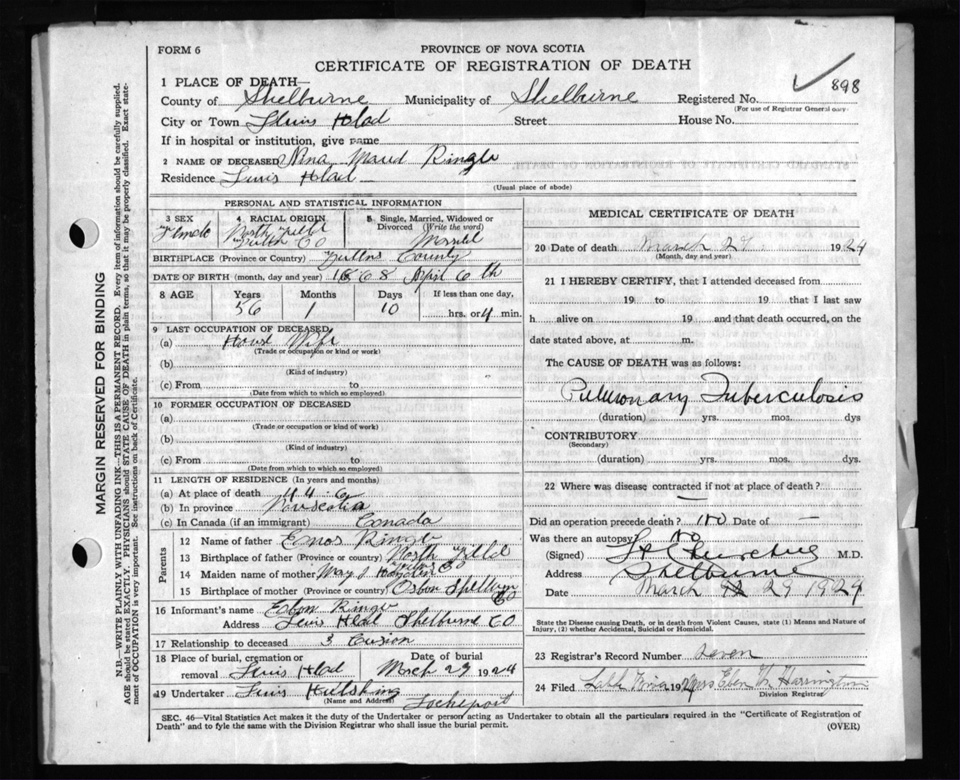 FORM 6
PROVINCE OF NOVA SCOTIA
CERTIFICATE OF REGISTRATION OF DEATH
898
1 PLACE OF DEATH—
County of Shelburne Municipality of Shelburne Registered No.
(For use of Registrar General only.
City or Town Street House No.
If in hospital or institution, give name
2 NAME OF DECEASED Nina Maud Ringo
Residence Head
(Usual place of abode)
PERSONAL AND STATISTICAL INFORMATION
3 SEX Female
4 RACIAL ORIGIN North
5 Single, Married, Widowed or Divorced (Write the word)
BIRTHPLACE (Province or Country) County
DATE OF BIRTH (month, day and year) 1868 April 6th
8 AGE Years 56 Months 1 Days 10 If less than one day, hrs. or 4 min.
9 LAST OCCUPATION OF DECEASED
(a) House Wife
(Trade or occupation or kind or work)
(b)
(Kind of industry)
(c) From to
(Date from which to which so employed)
10 FORMER OCCUPATION OF DECEASED
(a)
(Trade or occupation or kind of work)
(b)
(Kind of industry)
(c) From to
(Date from which to which so employed)
11 LENGTH OF RESIDENCE (In years and months)
(a) At place of death 44-6
(b) In province
(c) In Canada (if an immigrant) Canada
Parents
12 Name of father Enos Ringo
13 Birthplace of father (Province or country) North
14 Maiden name of mother Mary J
15 Birthplace of mother (Province or country)
16 Informant's name Eben Ringo
Address Shelburne CO
17 Relationship to deceased 3 Cusion
18 Place of burial, cremation or removal Date of burial March 29 1924
19 Undertaker
(Name and Address)
MEDICAL CERTIFICATE OF DEATH
20 Date of death March 27 1924
(Month, day and year)
21 I HEREBY CERTIFY, that I attended deceased from
19 to 19 that I last saw
h alive on 19 and that death occurred, on the
date stated above, at m.
The CAUSE OF DEATH was as follows:
Pulmonary Tuberculosis
(duration) yrs. mos. dys
CONTRIBUTORY
(Secondary)
(duration) yrs. mos. dys.
22 Where was disease contracted if not at place of death?
—
Did an operation precede death? no Date of —
Was there an autopsy? no
(Signed) M.D.
Address Shelburne
Date March 29 1924
State the Disease causing Death, or in death from Violent Causes, state (1) Means and Nature of
Injury, (2) whether Accidental, Suicidal or Homicidal.
23 Registrar's Record Number seven
24 Filed 192 Mrs Eben Harrington
Division Registrar
SEC. 46—Vital Statistics Act makes it the duty of the Undertaker or person acting as Undertaker to obtain all the particulars required in the "Certificate of Registration of
Death" and to fyle the same with the Division Registrar who shall issue the burial permit. (OVER)
MARGIN RESERVED FOR BINDING
N.B.—WRITE PLAINLY WITH UNFADING INK—THIS IS A PERMANENT RECORD. Every item of information should be carefully supplied.
AGE should be stated EXACTLY. PHYSICIANS should STATE CAUSE OF DEATH in plain terms, so that it may be properly classified. Exact state-
ment of OCCUPATION is very important. See instructions on back of Certificate.